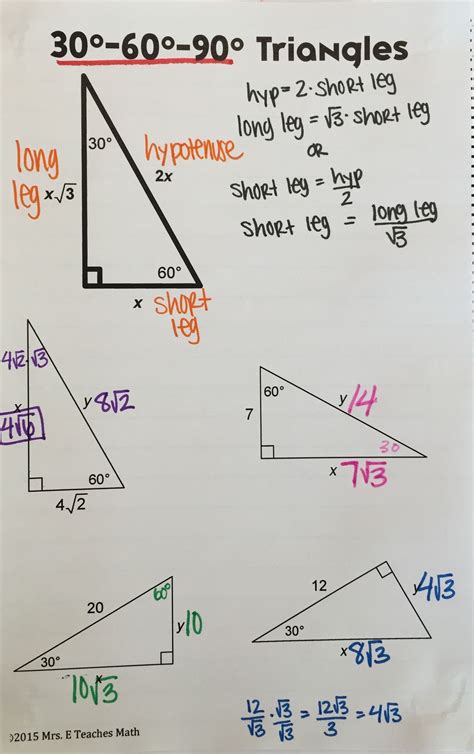 30°-60°-90° Triangles
hyp = 2 · short leg
long leg = √3 · short leg
OR
short leg = hyp/2
short leg = long leg/√3
30°
long
leg x√3
hypotenuse
2x
60°
x short
leg
4√2·√3
x
4√6
y 8√2
60°
4√2
60°
7
y 14
30
x 7√3
20
60°
y 10
30°
x
10√3
12
y 4√3
30°
x 8√3
12/√3 · √3/√3 = 12√3/3 = 4√3
©2015 Mrs. E Teaches Math